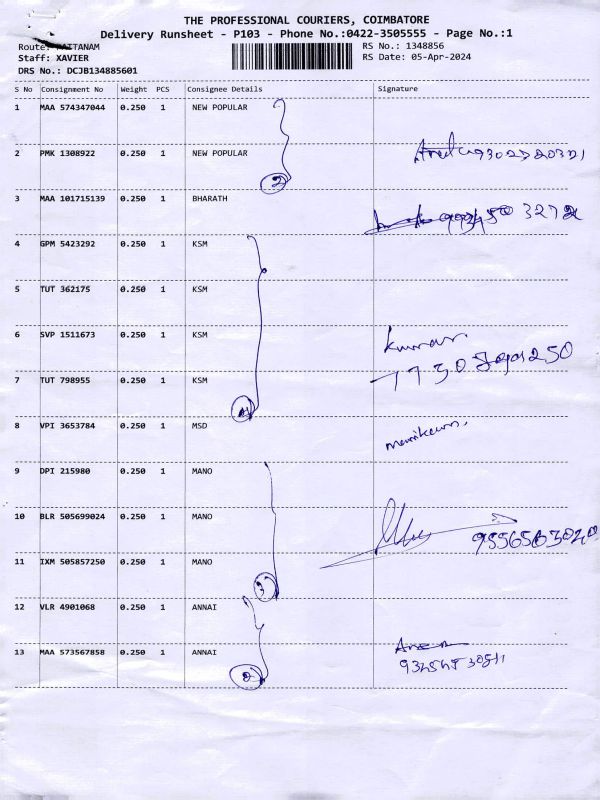 THE PROFESSIONAL COURIERS, COIMBATORE
Delivery Runsheet - P103 - Phone No.:0422-3505555 - Page No.:1
Route: PATTANAM
RS No.: 1348856
Staff: XAVIER
RS Date: 05-Apr-2024
DRS No.: DCJB134885601
S No Consignment No Weight PCS Consignee Details Signature
1 MAA 574347044 0.250 1 NEW POPULAR
2 PMK 1308922 0.250 1 NEW POPULAR
2
3 MAA 101715139 0.250 1 BHARATH
4 GPM 5423292 0.250 1 KSM
5 TUT 362175 0.250 1 KSM
6 SVP 1511673 0.250 1 KSM
kumar
7 TUT 798955 0.250 1 KSM
4
8 VPI 3653784 0.250 1 MSD
9 DPI 215980 0.250 1 MANO
10 BLR 505699024 0.250 1 MANO
11 IXM 505857250 0.250 1 MANO
3
12 VLR 4901068 0.250 1 ANNAI
13 MAA 573567858 0.250 1 ANNAI
2